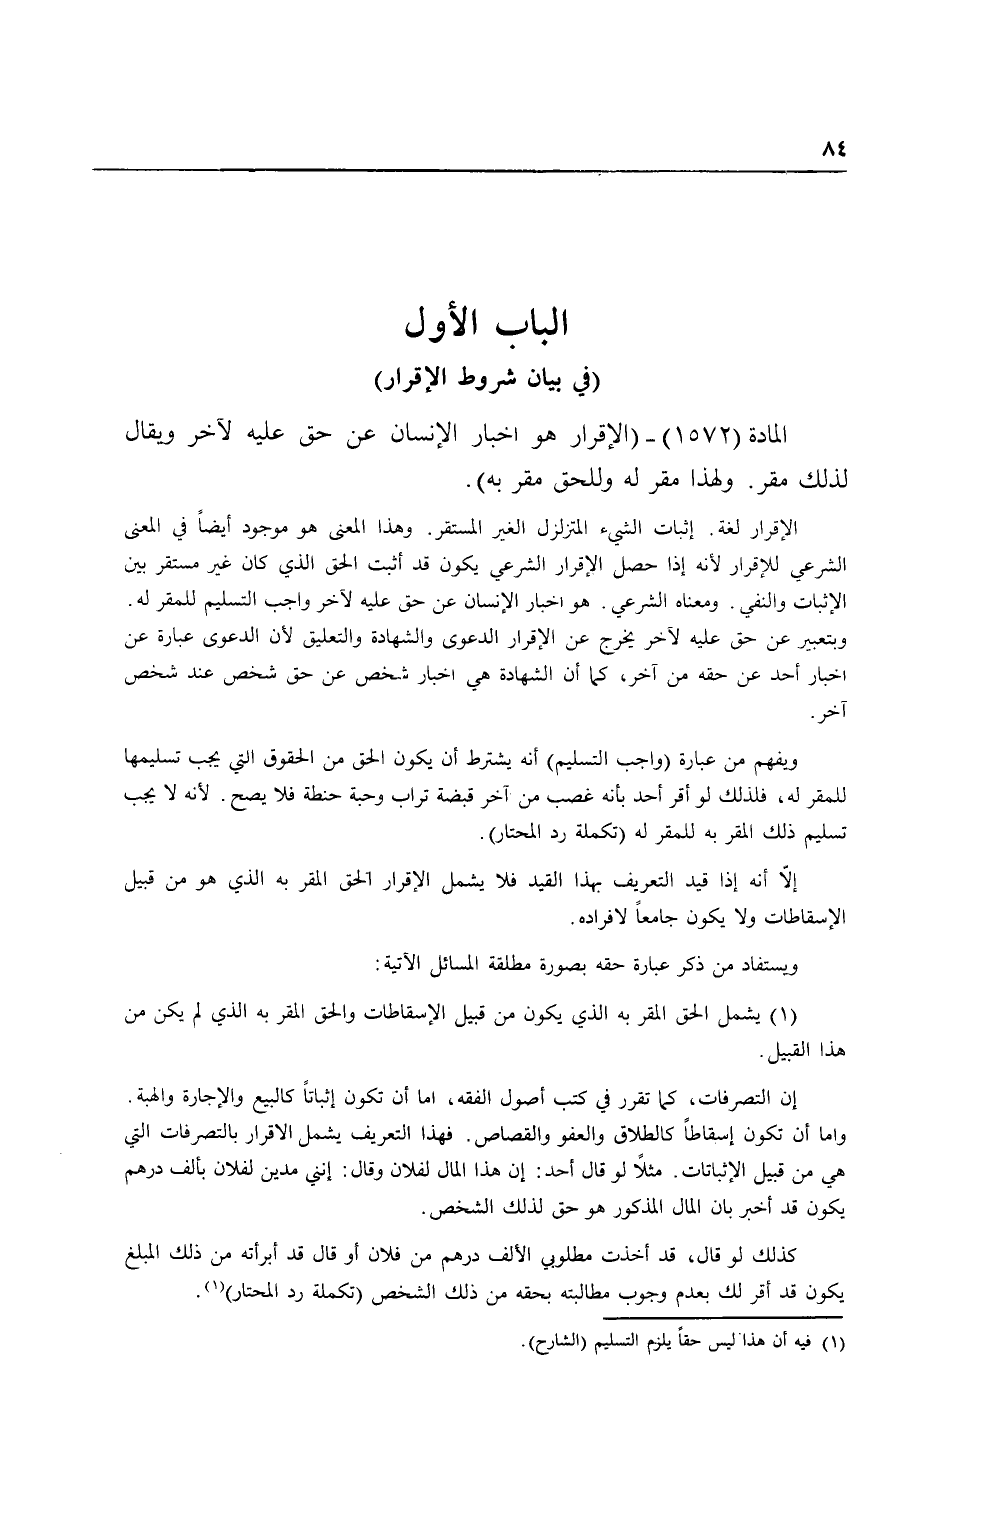 ٨٤
الباب الأول
(في بيان شروط الإقرار)
المادة (١٥٧٢) ـ (الإقرار هو اخبار الإنسان عن حق عليه لآخر ويقال
لذلك مقر. ولهذا مقر له وللحق مقر به).
الإقرار لغة. إثبات الشيء المتزلزل الغير المستقر. وهذا المعنى هو موجود أيضاً في المعنى
الشرعي للإقرار لأنه إذا حصل الإقرار الشرعي يكون قد أثبت الحق الذي كان غير مستقر بين
الإثبات والنفي. ومعناه الشرعي. هو اخبار الإنسان عن حق عليه لآخر واجب التسليم للمقر له.
وبتعبير عن حق عليه لآخر يخرج عن الإقرار الدعوى والشهادة والتعليق لأن الدعوى عبارة عن
اخبار أحد عن حقه من آخر، كما أن الشهادة هي اخبار شخص عن حق شخص عند شخص
آخر.
ويفهم من عبارة (واجب التسليم) أنه يشترط أن يكون الحق من الحقوق التي يجب تسليمها
للمقر له، فلذلك لو أقر أحد بأنه غصب من آخر قبضة تراب وحبة حنطة فلا يصح. لأنه لا يجب
تسليم ذلك المقر به للمقر له (تكملة رد المحتار).
إلّا أنه إذا قيد التعريف بهذا القيد فلا يشمل الإقرار الحق المقر به الذي هو من قبيل
الإسقاطات ولا يكون جامعاً لافراده.
ويستفاد من ذكر عبارة حقه بصورة مطلقة المسائل الآتية:
(١) يشمل الحق المقر به الذي يكون من قبيل الإسقاطات والحق المقر به الذي لم يكن من
هذا القبيل.
إن التصرفات، كما تقرر في كتب أصول الفقه، اما أن تكون إثباتاً كالبيع والإجارة والهبة.
واما أن تكون إسقاطاً كالطلاق والعفو والقصاص. فهذا التعريف يشمل الاقرار بالتصرفات التي
هي من قبيل الإثباتات. مثلاً لو قال أحد: إن هذا المال لفلان وقال: إنني مدين لفلان بألف درهم
يكون قد أخبر بان المال المذكور هو حق لذلك الشخص.
كذلك لو قال، قد أخذت مطلوبي الألف درهم من فلان أو قال قد أبرأته من ذلك المبلغ
يكون قد أقر لك بعدم وجوب مطالبته بحقه من ذلك الشخص (تكملة رد المحتار)(١).
(١) فيه أن هذا ليس حقاً يلزم التسليم (الشارح).